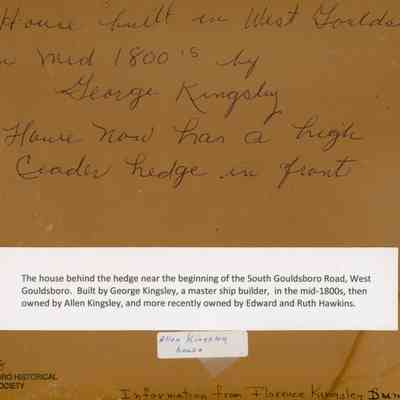 House built in West Goulds
in mid 1800's by
George Kingsley
House now has a high
Ceader hedge in front
The house behind the hedge near the beginning of the South Gouldsboro Road, West
Gouldsboro. Built by George Kingsley, a master ship builder, in the mid-1800s, then
owned by Allen Kingsley, and more recently owned by Edward and Ruth Hawkins.
Allen Kingsley
house
RO HISTORICAL
OCIETY
Information from Florence Kingsley Bun